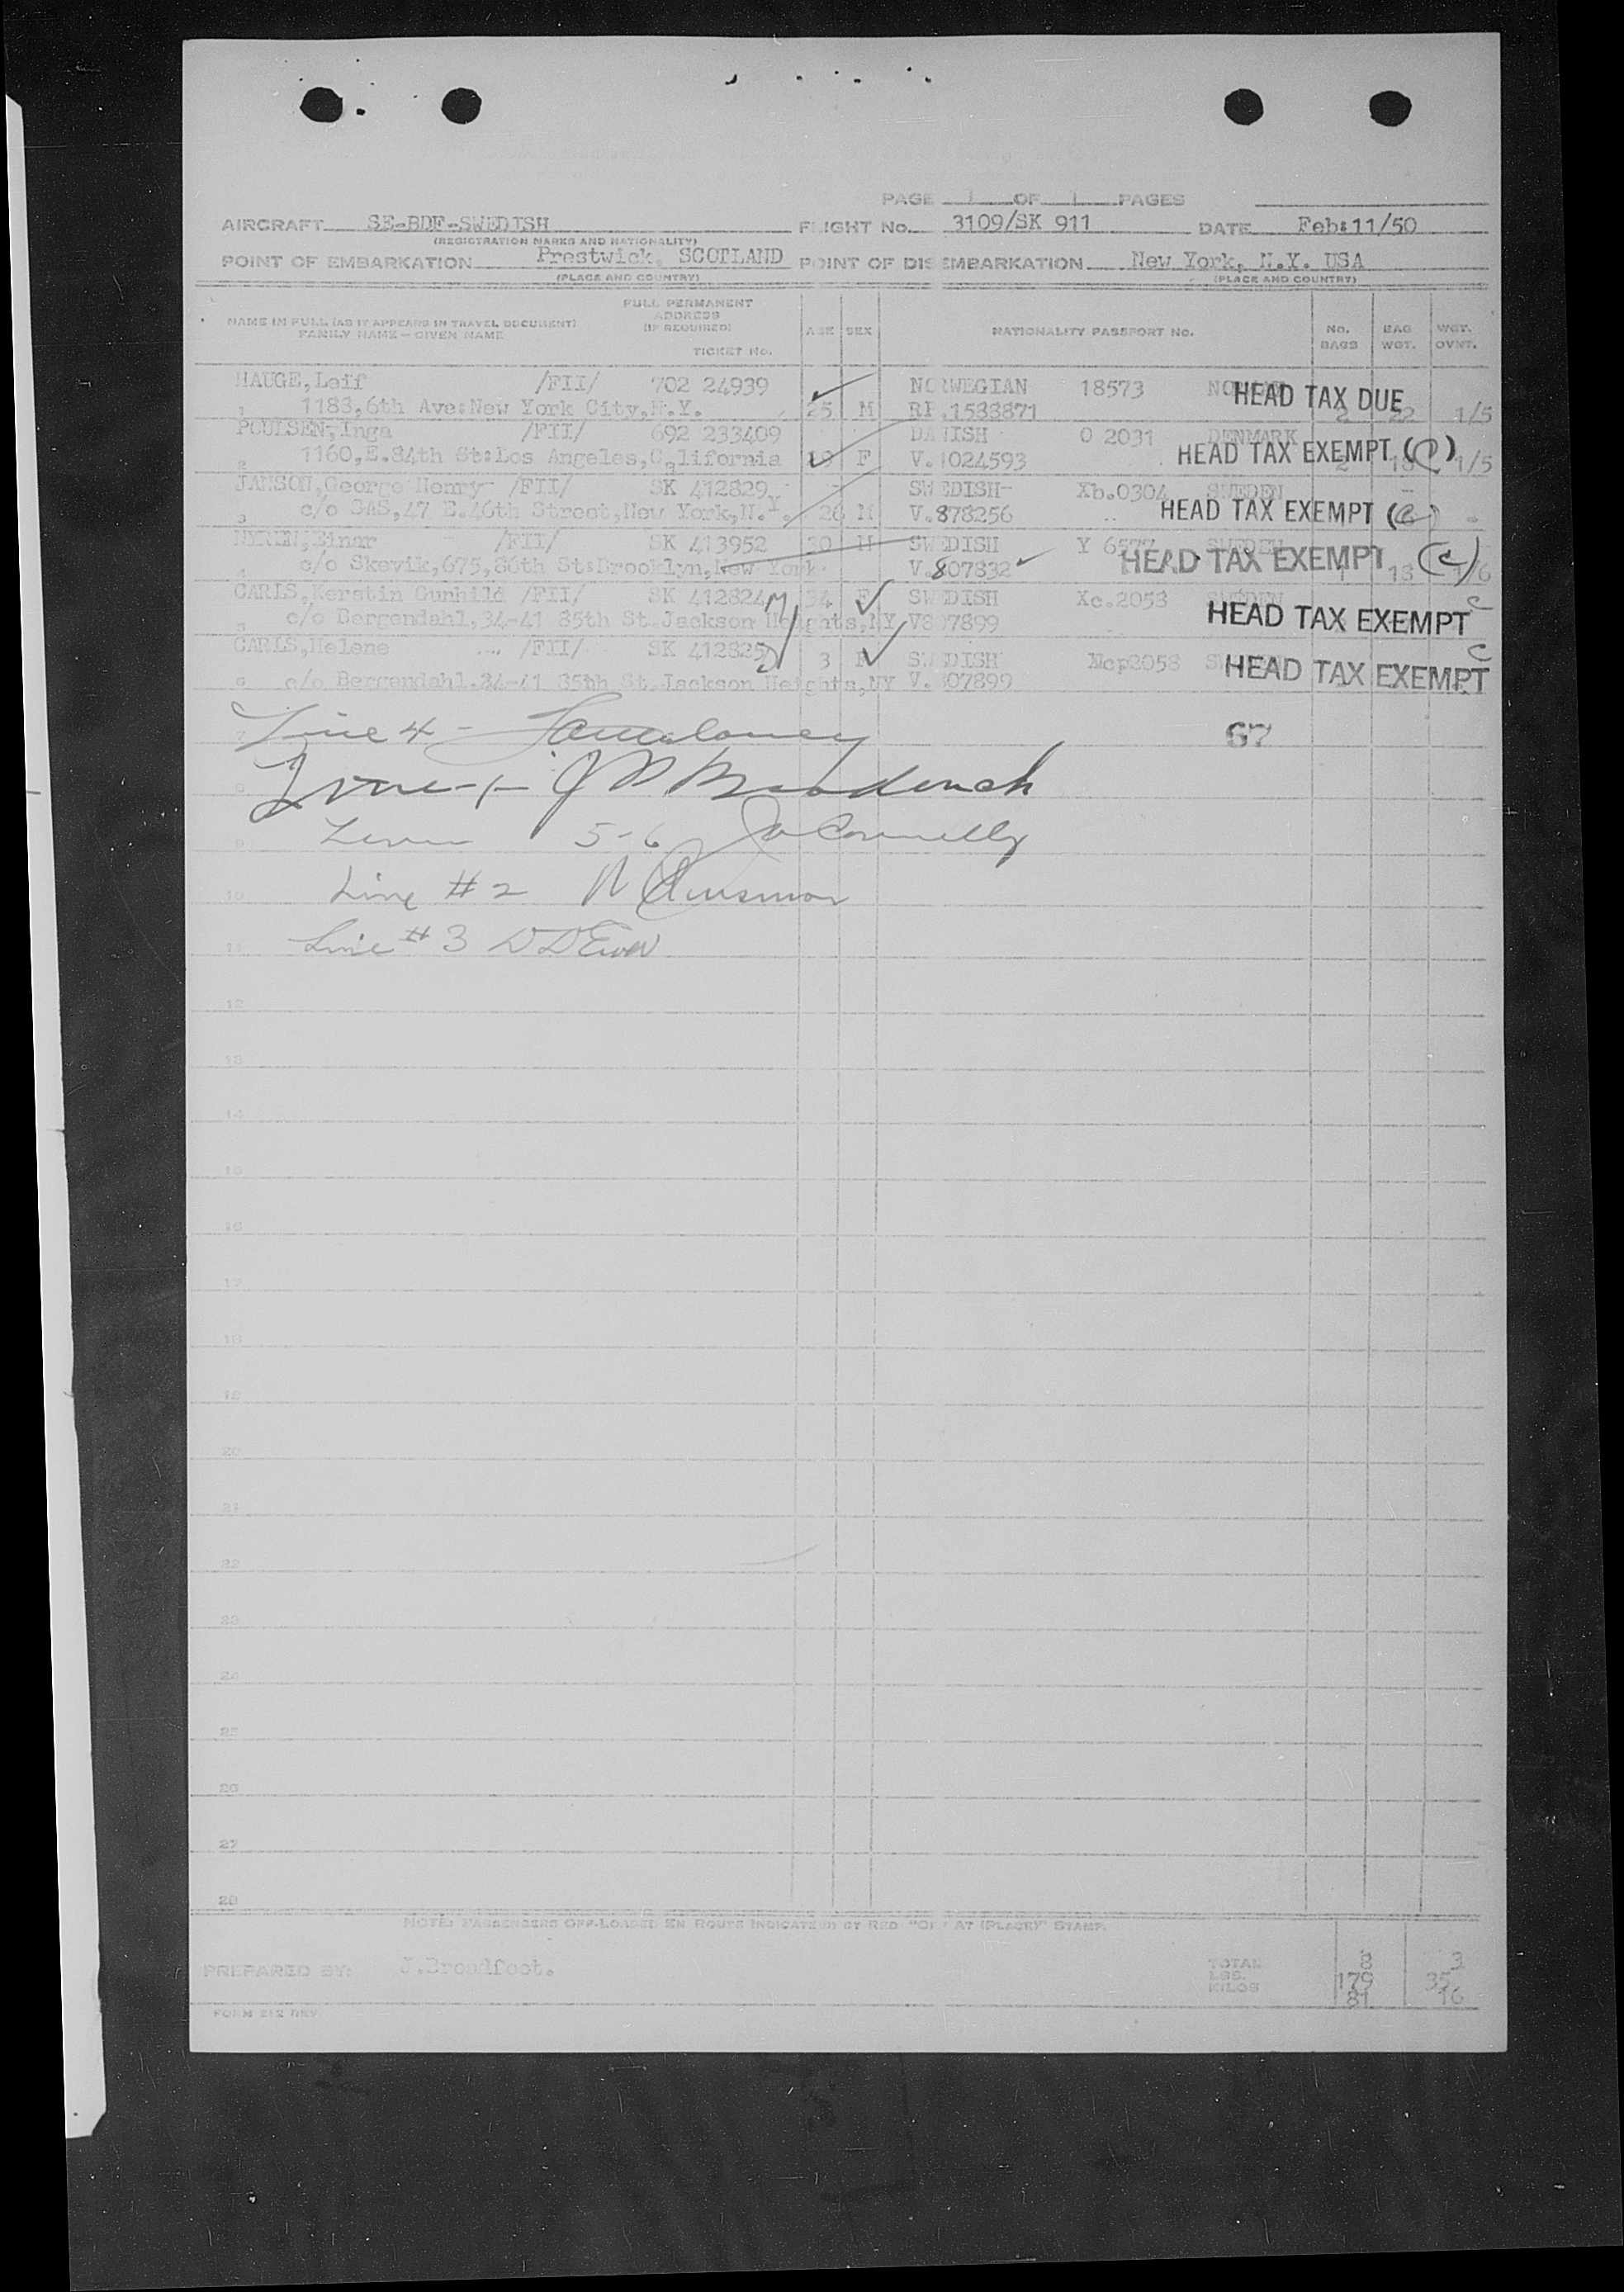 PAGE 1 OF 1 PAGES
AIRCRAFT SE-BDF-SWEDISH FLIGHT No. 3109/SK 911 DATE Feb:11/50
(REGISTRATION MARKS AND NATIONALITY)
POINT OF EMBARKATION Prestwick, SCOTLAND POINT OF DISEMBARKATION New York, N.Y. USA
(PLACE AND COUNTRY) (PLACE AND COUNTRY)
NAME IN FULL (AS IT APPEARS IN TRAVEL DOCUMENT) FAMILY NAME—GIVEN NAME
FULL PERMANENT ADDRESS (IF REQUIRED) TICKET No.
AGE SEX NATIONALITY PASSPORT No. No. BAGS BAG WGT. WGT. OVWT.
HAUGE,Leif /FII/ 702 24939 NORWEGIAN 18573 HEAD TAX DUE
1 1183,6th Ave:New York City,N.Y. 25 M RP.1533871 2 22 1/5
POULSEN,Inga /FII/ 692 233409 DANISH O 2031 DENMARK
2 1160,E.84th St:Los Angeles,California 19 F V.1024593 HEAD TAX EXEMPT 1/5
JANSON,George Henry /FII/ SK 412829 SWEDISH Xb.0304 SWEDEN
3 c/o SAS,47 E.46th Street,New York,N.Y. 26 M V.878256 HEAD TAX EXEMPT
NYREN,Einar /FII/ SK 413952 30 M SWEDISH Y 6577 SWEDEN
4 c/o Skevik,675,86th St:Brooklyn,New York V.807832 HEAD TAX EXEMPT (c)
CARLS,Kerstin Gunhild /FII/ SK 412824 34 F SWEDISH Xc.2053
5 c/o Bergendahl,34-41 85th St.Jackson Heights,NY V807899 HEAD TAX EXEMPT c
CARLS,Helene /FII/ SK 412825 3 F SWEDISH
6 c/o Bergendahl.34-41 85th St.Jackson Heights,NY V.807899 HEAD TAX EXEMPT c
7 Line 4 - 67
8
9 5-6 Connelly
10 Line #2
11 Line #3
12
13
14
15
16
17
18
19
20
21
22
23
24
25
26
27
28
NOTE: PASSENGERS OFF-LOADED EN ROUTE INDICATED BY RED "OFF AT (PLACE)" STAMP.
PREPARED BY: J.Broadfoot. TOTAL 8 3
LBS. 179 35
KILOS 81 16